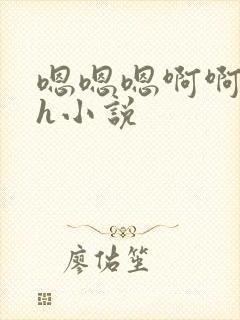 嗯嗯嗯啊啊
h小說
廖佑笙